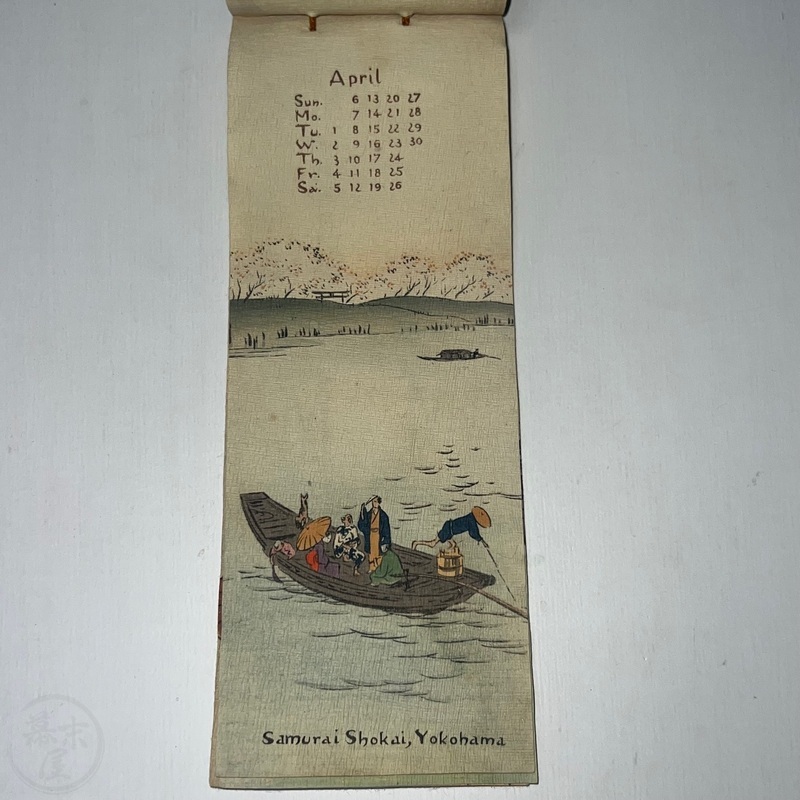 April
Sun. 6 13 20 27
Mo. 7 14 21 28
Tu. 1 8 15 22 29
W. 2 9 16 23 30
Th. 3 10 17 24
Fr. 4 11 18 25
Sa. 5 12 19 26
Samurai Shokai, Yokohama
幕末屋